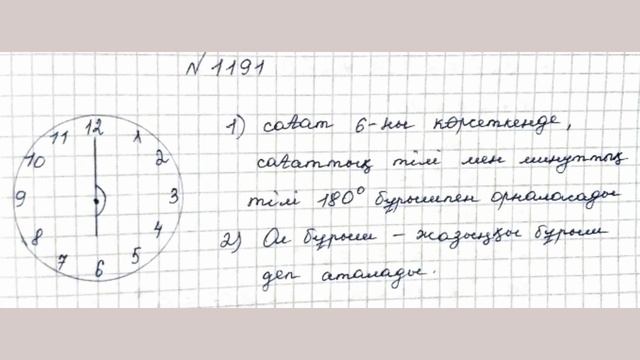 № 1191
12
1
2
3
4
5
6
7
8
9
10
11
1) сағат 6-ны көрсеткенде,
сағаттық тілі мен минуттық
тілі 180° бұрышпен орналасады
2) Ол бұрыш – жазыңқы бұрыш
деп аталады.